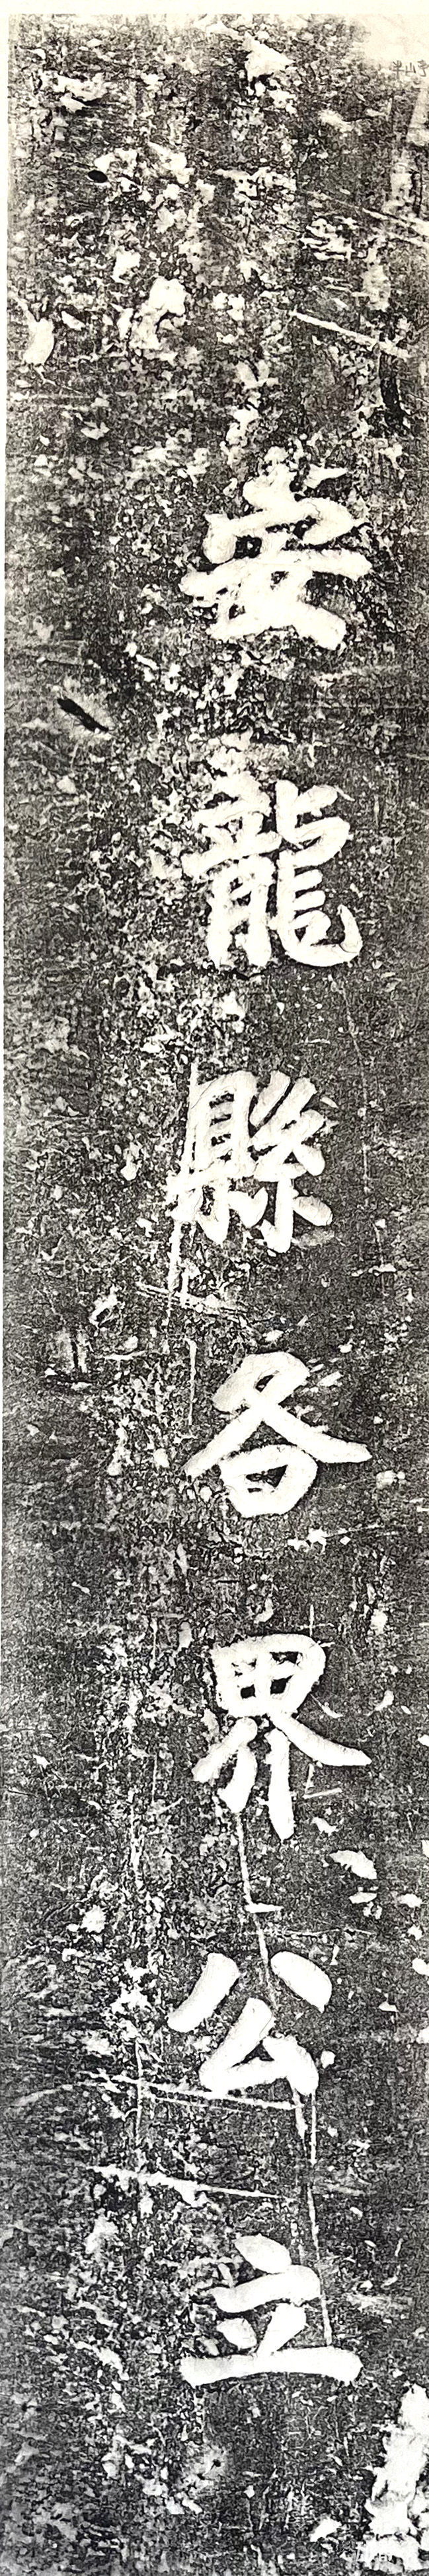 安龍縣各界公立